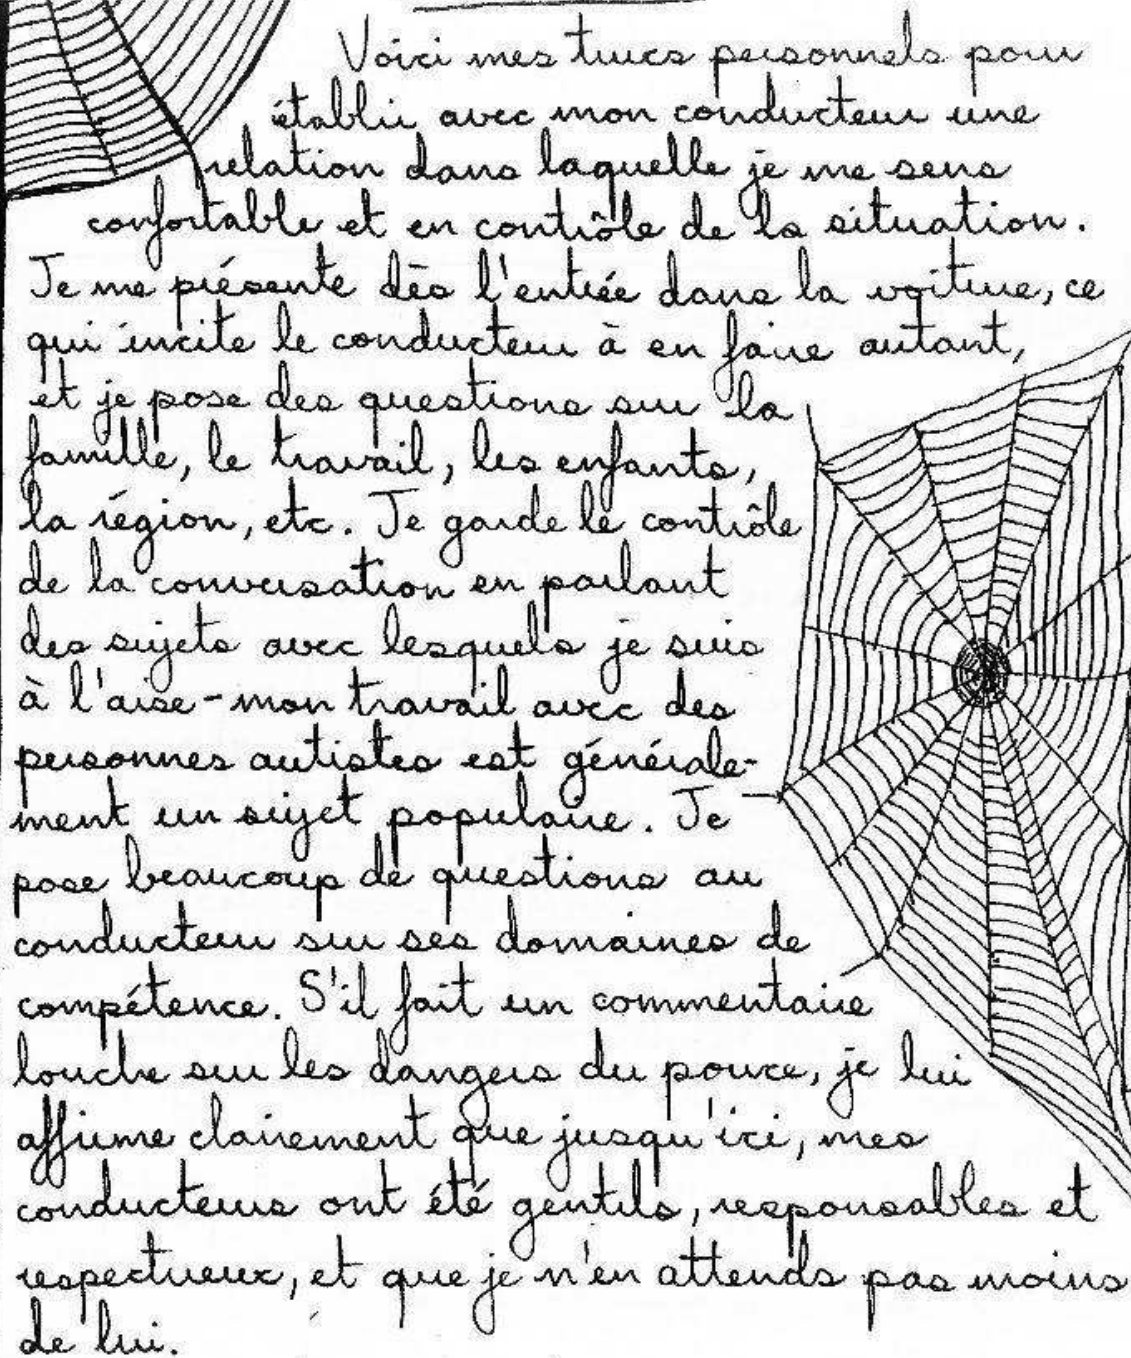 Voici mes trucs personnels pour
établir avec mon conducteur une
relation dans laquelle je me sens
confortable et en contrôle de la situation.
Je me présente dès l'entrée dans la voiture, ce
qui incite le conducteur à en faire autant,
et je pose des questions sur la
famille, le travail, les enfants,
la région, etc. Je garde le contrôle
de la conversation en parlant
des sujets avec lesquels je suis
à l'aise - mon travail avec des
personnes autistes est générale-
ment un sujet populaire. Je
pose beaucoup de questions au
conducteur sur ses domaines de
compétence. S'il fait un commentaire
louche sur les dangers du pouce, je lui
affirme clairement que jusqu'ici, mes
conducteurs ont été gentils, responsables et
respectueux, et que je n'en attends pas moins
de lui.